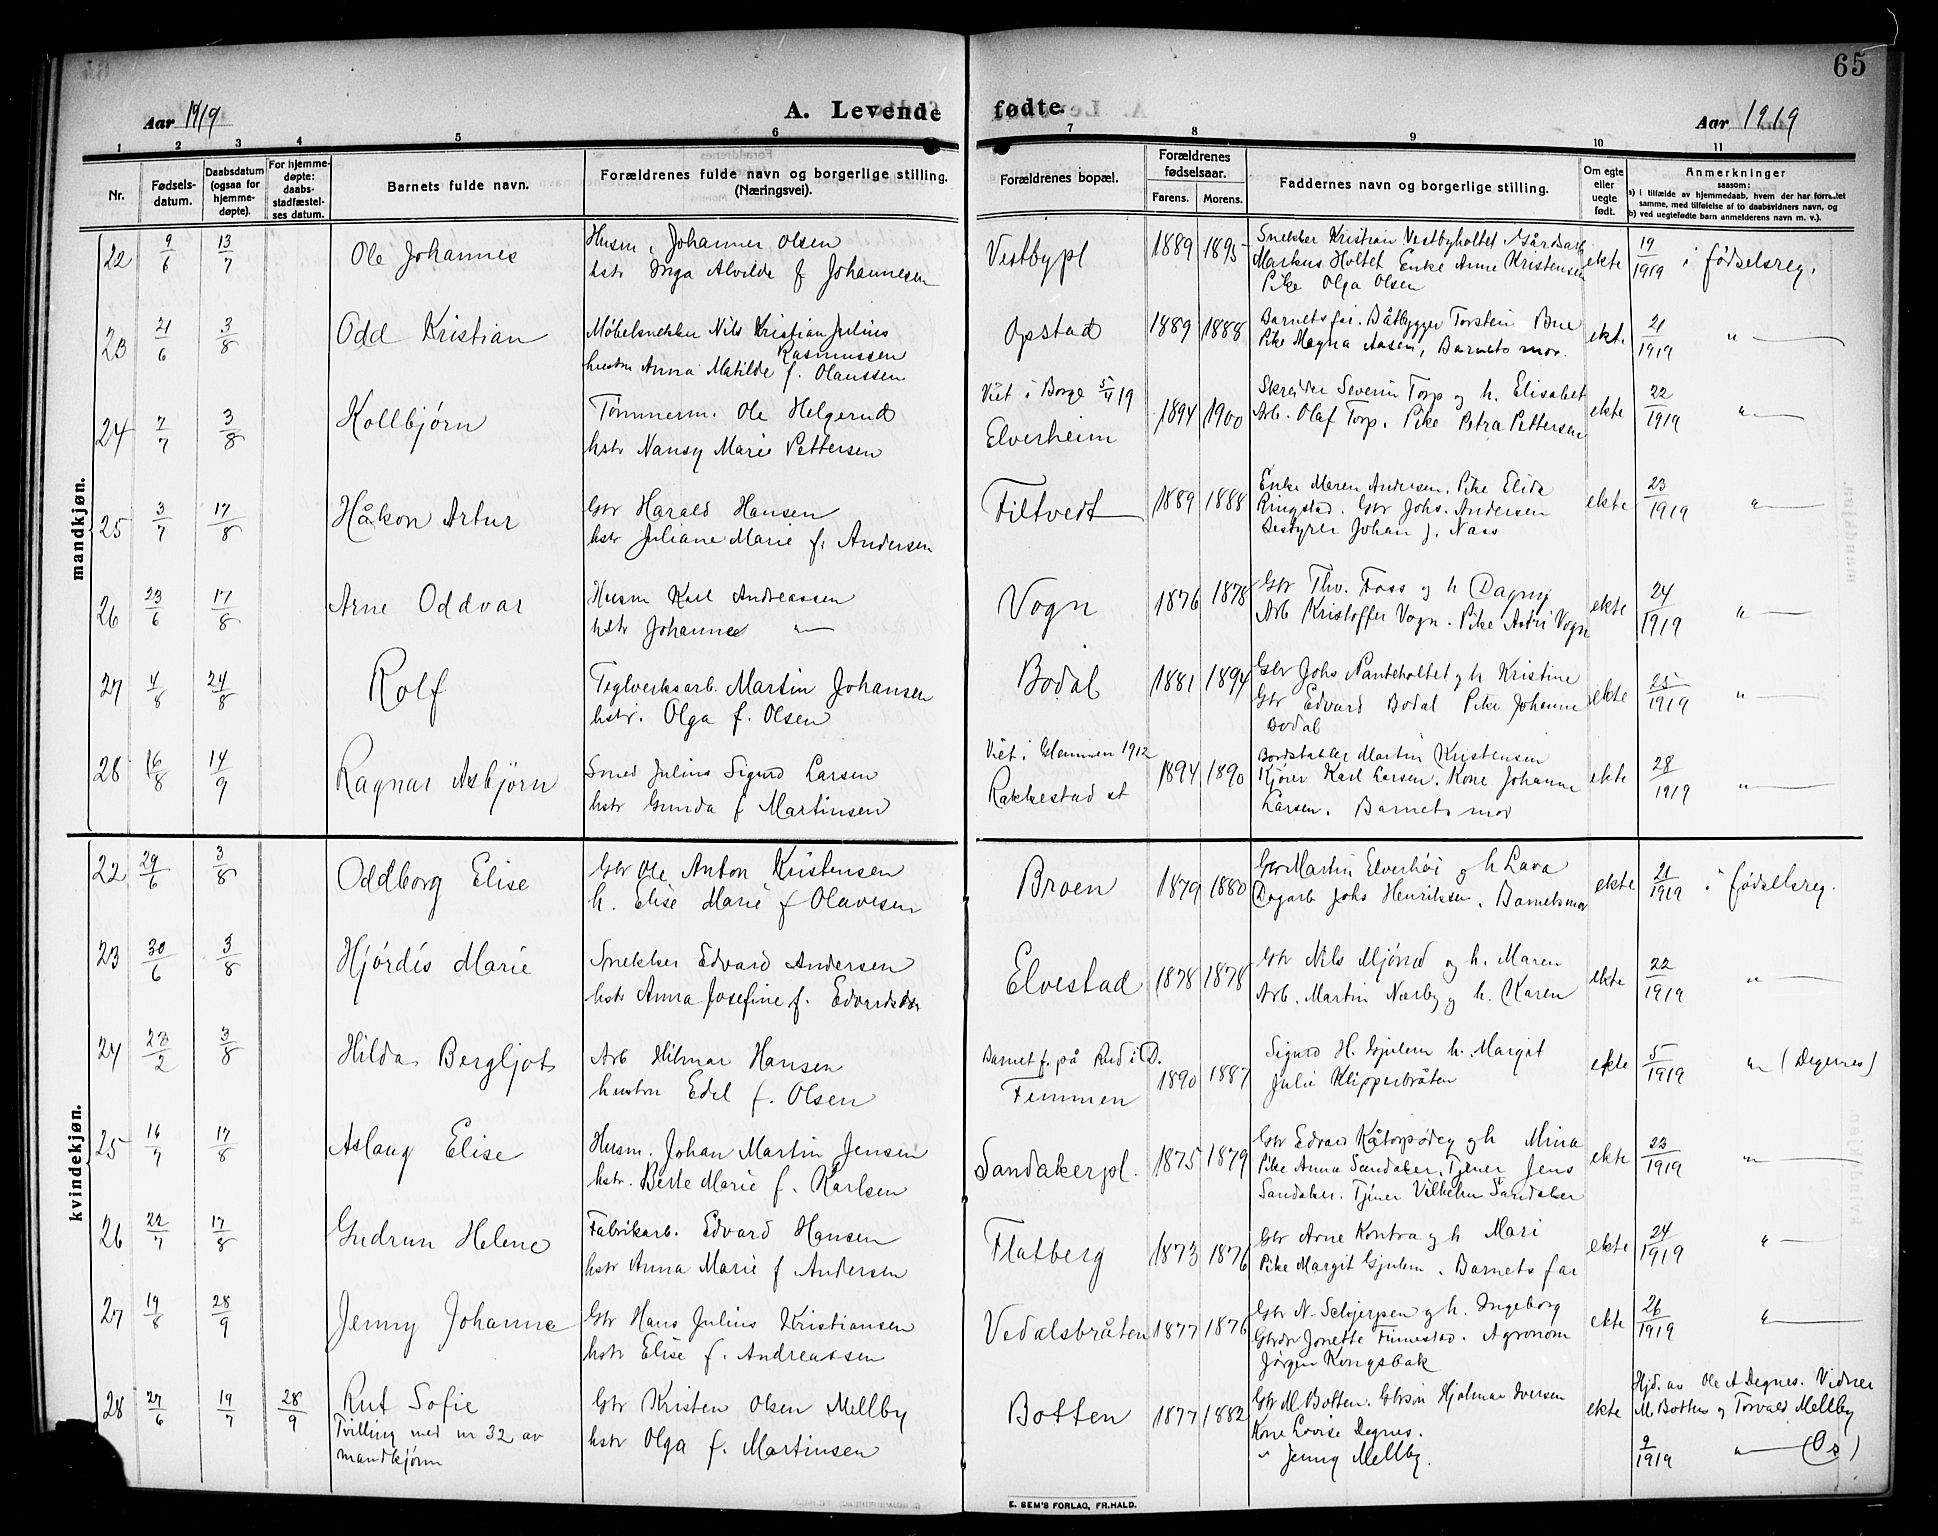 65
Aar 1919
A. Levende fødte.
Aar 1919
1 2 3 4 5 6 7 8 9 10 11
Nr.
Fødsels-
datum.
Daabsdatum
(ogsaa for
hjemme-
døpte).
For hjemme-
døpte:
daabs-
stadfæstel-
ses datum.
Barnets fulde navn.
Forældrenes fulde navn og borgerlige stilling.
(Næringsvei).
Forældrenes bopæl.
Forældrenes
fødselsaar.
Farens. Morens.
Faddernes navn og borgerlige stilling.
Om egte
eller
uegte
født.
Anmerkninger
saasom:
a) i tilfælde av hjemmedaab, hvem der har forrettet
samme, med tilføielse af to daabsvidners navn, og
b) ved uegtefødte barn anmelderens navn m. v.).
mandkjøn.
22 9/6 13/7 Ole Johannes
Husm. Johannes Olsen
hstr Inga Alvilde f Johannesen
Vestbypl 1889 1895
Snekker Kristian Vestbyholtet Gårdarb
Markus Holtet Enke Anne Kristensen
Pike Olga Olsen
ekte 19/1919 i fødselsreg.
23 21/6 3/8 Odd Kristian
Møbelsnekker Nils Kristian Julius
Rasmussen
hustru Anna Matilde f. Olaussen
Opstad 1889 1888
Barnets far. Båtbygger Torstein Bue
Pike Magna Aasen, Barnets mor.
ekte 21/1919 "
24 7/7 3/8 Kollbjørn
Tømmerm. Ole Helgerud
hstr Nansy Marie Pettersen
Viet i Borge 5/4 19
Elverheim 1894 1900
Skreder Severin Torp og h. Elisabet
Arb. Olaf Torp. Pike Petra Pettersen
ekte 22/1919 "
25 3/7 17/8 Håkon Artur
Gbr Harald Hansen
hstr Juliane Marie f. Andersen
Filtvedt 1889 1888
Enke Maren Andersen. Pike Elida
Ringstad. Gbr Johs. Andersen
Bestyrer Johan J. Næss
ekte 23/1919 "
26 23/6 17/8 Arne Oddvar
Husm Karl Andreassen
hstr Johanne "
Vogn 1876 1878
Gbr Thv. Foss og h Dagny
Arb Kristoffer Vogn. Pike Astri Vogn
ekte 24/1919 "
27 4/8 24/8 Rolf
Teglverksarb. Martin Johansen
hstr. Olga f. Olsen
Bodal 1881 1894
Gbr Johs Panteholtet og h Kristine
Gbr Edvard Bodal Pike Johanne
Bodal
ekte 25/1919 "
28 16/8 14/9 Ragnar Asbjørn
Smed Julius Sigurd Larsen
hstr Gunda f Martinsen
Viet i Glemmen 1912
Rakkestad st 1894 1890
Bordstabler Martin Kristensen
Kjører Karl Larsen. Kone Johanne
Larsen. Barnets mor
ekte 28/1919 "
kvindekjøn.
22 29/6 3/8 Oddborg Elise
Gbr Ole Anton Kristensen
h. Elise Marie f Olavesen
Broen 1879 1880
Gbr Martin Elverhøi og h Lava
Dagarb Johs Henriksen. Barnets mor
ekte 21/1919 i fødselsreg.
23 30/6 3/8 Hjórdis Marie
Snekker Edvard Andersen
hstr Anna Josefine f. Edvardsdr
Elvestad 1878 1878
Gbr Nils Mjørud og h. Maren
Arb. Martin Nærby og h. Karen
ekte 22/1919 "
24 23/2 3/8 Hilda Bergljot
Arb Hilmar Hansen
hustru Edel f. Olsen
Barnet f. på Rud i D.
Femmen 1890 1887
Sigurd H. Gjulem h. Margit
Julie Klipperbråten
ekte 5/1919 " (Degernes)
25 16/7 17/8 Aslaug Elise
Husm. Johan Martin Jensen
hstr. Berte Marie f. Karlsen
Sandakerpl. 1875 1879
Gbr Edvard Kåtorpødeg og h Mina
Pike Anna Sandaker. Tjener Jens
Sandaker. Tjener Vilhelm Sandaker
ekte 23/1919 "
26 22/7 17/8 Gudrun Helene
Fabrikarb. Edvard Hansen
hstr Anna Marie f Andersen
Flatberg 1873 1876
Gbr Arne Kontra og h Mari
Pike Margit Gjulem. Barnets far
ekte 24/1919 "
27 19/8 28/9 Jenny Johanne
Gbr Hans Julius Kristiansen
hstr Elise f. Andreassen
Vedalsbråten 1877 1876
Gbr N. Schjerpen og h. Ingeborg
Gbrdr Jonette Finnestad. Agronom
Jørgen Kongsbak
ekte 26/1919 "
28 27/6 19/7 28/9 Rut Sofie
Tvilling med nr 32 av
mandkjønn
Gbr Kristen Olsen Mellby
hstr Olga f. Martinsen
Botten 1877 1882
Gbr M. Botten. Gbrsøn Hjalmar Iversen
Kone Lovise Degnes.
" Jenny Mellby.
ekte
Hjd. av Ole A Degnes. Vidner
M Botten og Torvald Mellby
9/1919 " (Os)
E. SEM'S FORLAG, FR.HALD.